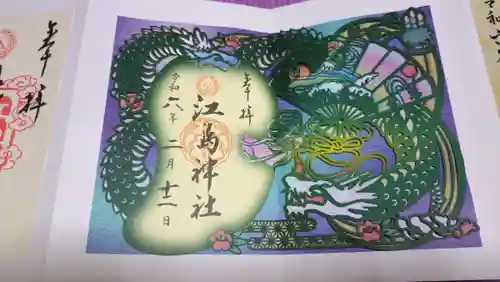 奉拝
江島神社
令和六年
二月十二日
奉拝